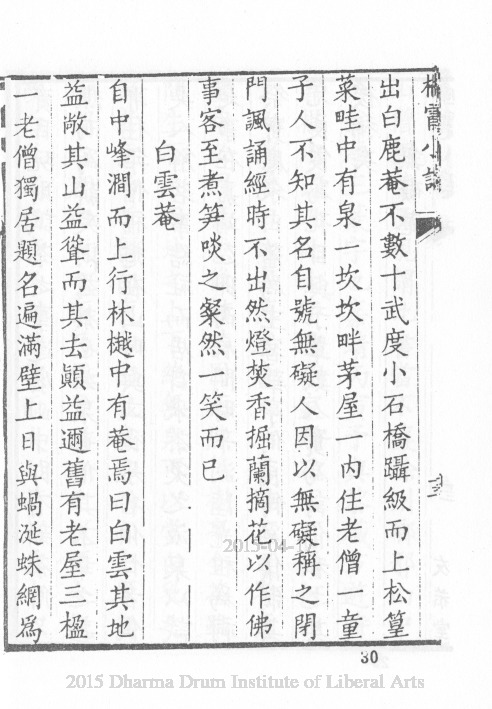 小
十三
出白鹿菴不數十武度小石橋躡級而上松篁
菜畦中有泉一坎坎畔茅屋一內住老僧一童
子人不知其名自號無礙人因以無礙稱之閉
門諷誦經時不出然燈焚香掘蘭摘花以作佛
事客至煮笋啖之粲然一笑而已
白雲菴
自中峰澗而上行林樾中有菴焉曰白雲其地
益敞其山益聳而其去顚益邇舊有老屋三楹
一老僧獨居題名遍滿壁上日與蝸涎蛛網爲
2015-04-
30
2015 Dharma Drum Institute of Liberal Arts